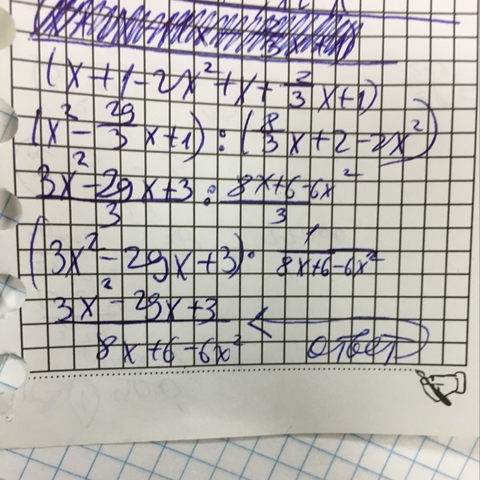 (x+1-2x²+x+2/3x+1)
(x²-29/3x+1):(8/3x+2-2x²)
3x²-29x+3/3 : 8x+6-6x²/3
(3x²-29x+3)·1/8x+6-6x²
3x²-29x+3
8x+6-6x² ответ